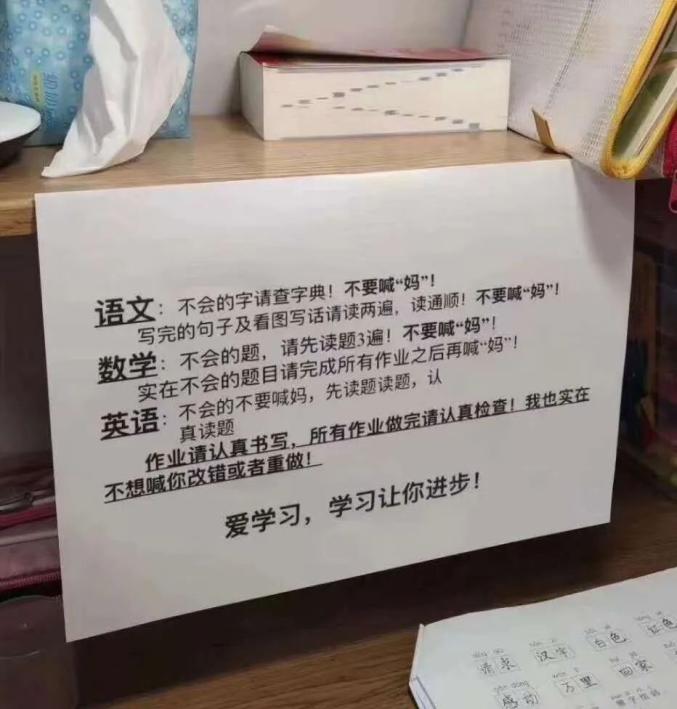 语文：不会的字请查字典！不要喊“妈”！
写完的句子及看图写话请读两遍，读通顺！不要喊“妈”！
数学：不会的题，请先读题3遍！不要喊“妈”！
实在不会的题目请完成所有作业之后再喊“妈”！
英语：不会的不要喊妈，先读题读题，认
真读题
作业请认真书写，所有作业做完请认真检查！我也实在
不想喊你改错或者重做！
爱学习，学习让你进步！
请求 汉字 白色 红色
感动 万里 回家